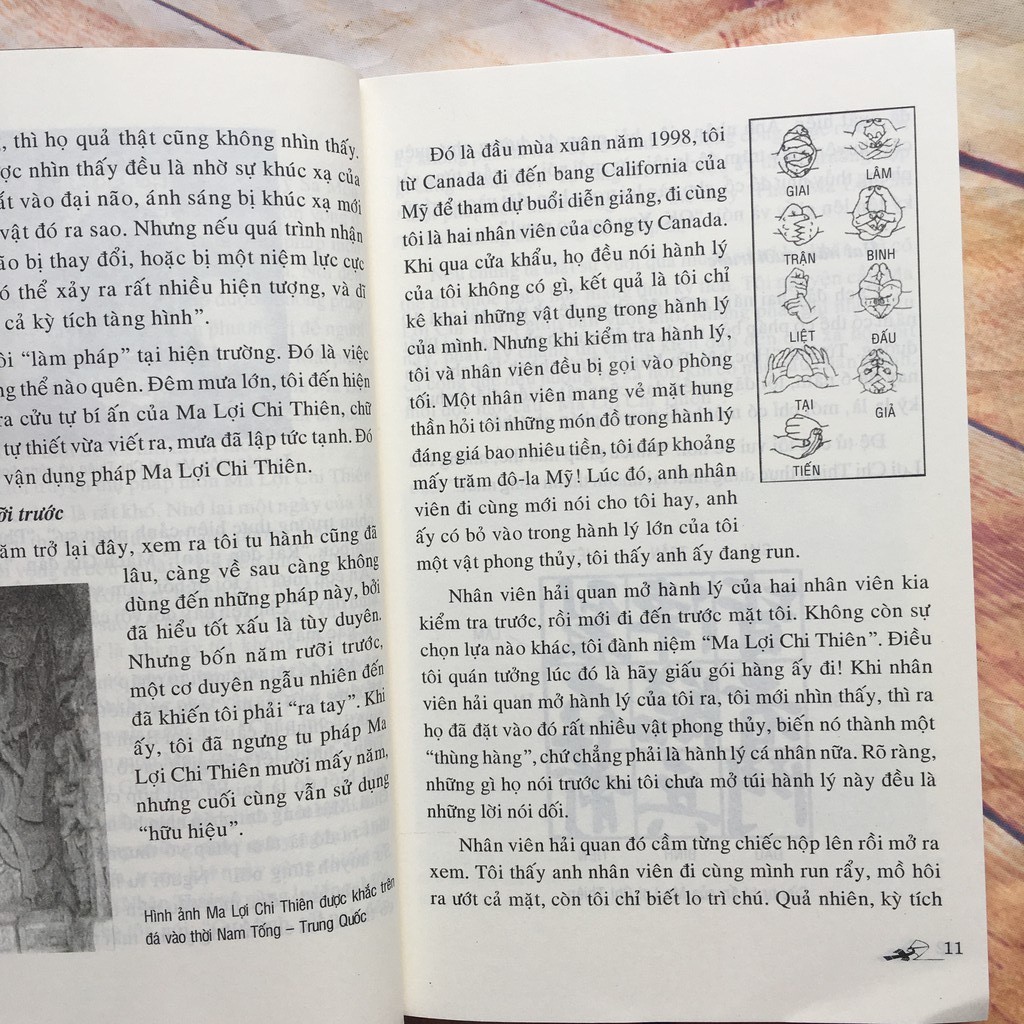 , thì họ quả thật cũng không nhìn thấy.
ợc nhìn thấy đều là nhờ sự khúc xạ của
ất vào đại não, ánh sáng bị khúc xạ mới
vật đó ra sao. Nhưng nếu quá trình nhận
ão bị thay đổi, hoặc bị một niệm lực cực
ó thể xảy ra rất nhiều hiện tượng, và dĩ
cả kỳ tích tàng hình”.
ôi “làm pháp” tại hiện trường. Đó là việc
ng thể nào quên. Đêm mưa lớn, tôi đến hiện
ra cửu tự bí ấn của Ma Lợi Chi Thiên, chữ
tự thiết vừa viết ra, mưa đã lập tức tạnh. Đó
vận dụng pháp Ma Lợi Chi Thiên.
ỡi trước
ăm trở lại đây, xem ra tôi tu hành cũng đã
lâu, càng về sau càng không
dùng đến những pháp này, bởi
đã hiểu tốt xấu là tùy duyên.
Nhưng bốn năm rưỡi trước,
một cơ duyên ngẫu nhiên đến
đã khiến tôi phải “ra tay”. Khi
ấy, tôi đã ngưng tu pháp Ma
Lợi Chi Thiên mười mấy năm,
nhưng cuối cùng vẫn sử dụng
“hữu hiệu”.
Hình ảnh Ma Lợi Chi Thiên được khắc trên
đá vào thời Nam Tống – Trung Quốc
Đó là đầu mùa xuân năm 1998, tôi
từ Canada đi đến bang California của
Mỹ để tham dự buổi diễn giảng, đi cùng
tôi là hai nhân viên của công ty Canada.
Khi qua cửa khẩu, họ đều nói hành lý
của tôi không có gì, kết quả là tôi chỉ
kê khai những vật dụng trong hành lý
của mình. Nhưng khi kiểm tra hành lý,
tôi và nhân viên đều bị gọi vào phòng
tối. Một nhân viên mang vẻ mặt hung
thần hỏi tôi những món đồ trong hành lý
đáng giá bao nhiêu tiền, tôi đáp khoảng
mấy trăm đô-la Mỹ! Lúc đó, anh nhân
viên đi cùng mới nói cho tôi hay, anh
ấy có bỏ vào trong hành lý lớn của tôi
một vật phong thủy, tôi thấy anh ấy đang run.
GIAI LÂM
TRẬN BINH
LIỆT ĐẤU
TẠI GIẢ
TIẾN
Nhân viên hải quan mở hành lý của hai nhân viên kia
kiểm tra trước, rồi mới đi đến trước mặt tôi. Không còn sự
chọn lựa nào khác, tôi đành niệm “Ma Lợi Chi Thiên”. Điều
tôi quán tưởng lúc đó là hãy giấu gói hàng ấy đi! Khi nhân
viên hải quan mở hành lý của tôi ra, tôi mới nhìn thấy, thì ra
họ đã đặt vào đó rất nhiều vật phong thủy, biến nó thành một
“thùng hàng”, chứ chẳng phải là hành lý cá nhân nữa. Rõ ràng,
những gì họ nói trước khi tôi chưa mở túi hành lý này đều là
những lời nói dối.
Nhân viên hải quan đó cầm từng chiếc hộp lên rồi mở ra
xem. Tôi thấy anh nhân viên đi cùng mình run rẩy, mồ hôi
ra ướt cả mặt, còn tôi chỉ biết lo trì chú. Quả nhiên, kỳ tích
11